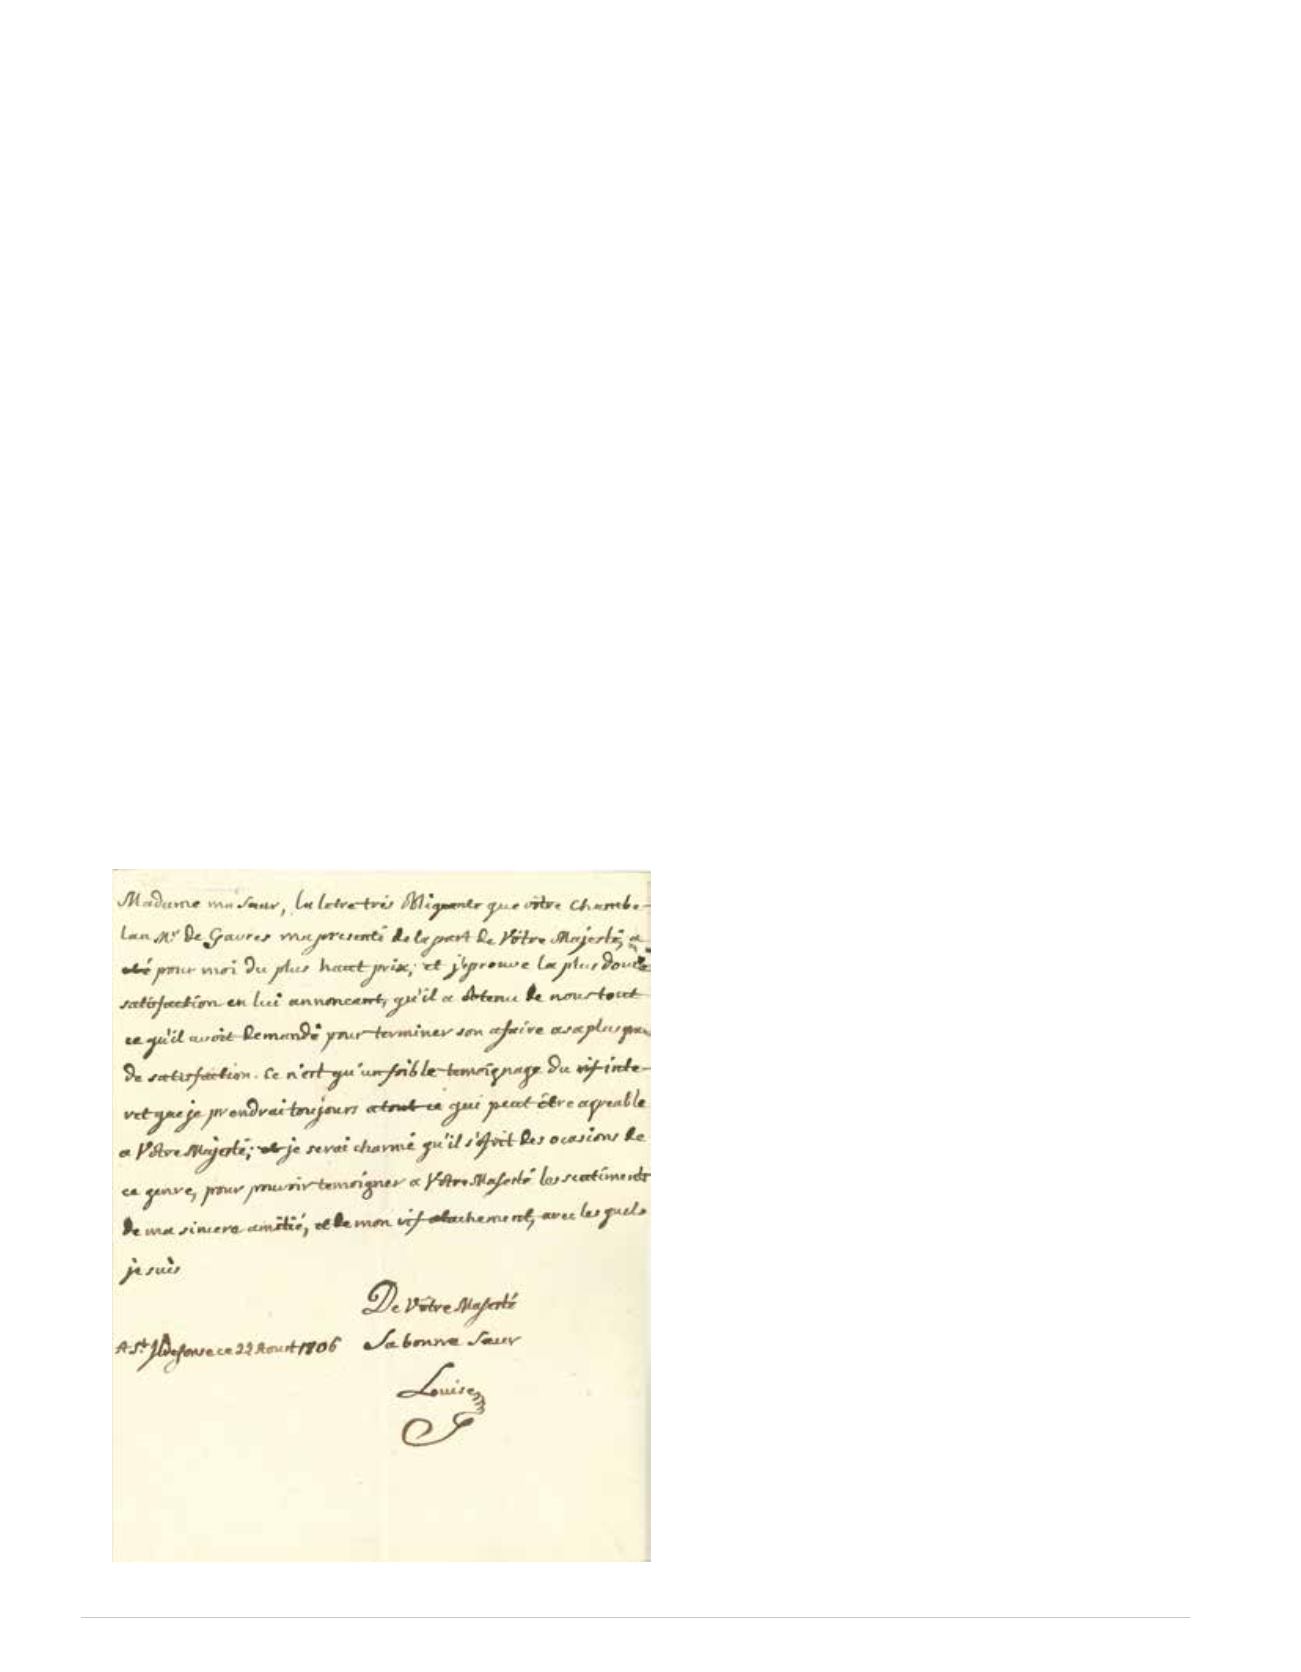 Madame ma Sœur, la letre tres obligeante que vôtre Chambe-
lan Mr. de Gavres ma presenté de la part de Vôtre Majesté, a
eté pour moi du plus haut prix; et j'eprouve la plus douce
satisfaction en lui annoncant, qu'il a obtenu de nous tout
ce qu'il avoit demandé pour terminer son afaire a sa plus gran
de satisfaction. Ce n'est qu'un foible temoignage du vif inte-
ret que je prendrai toujours a tout ce qui peut être agreable
a Vôtre Majesté; et je serai charmé qu'il s'ofrit des ocasions de
ce genre, pour pouvoir temoigner a Vôtre Majesté les sentiments
de ma sincere amitié, et de mon vif atachement, avec les quels
je suis
De Vôtre Majesté
A St. Ildefonse ce 22 Aout 1806 Sa bonne Sœur
Louise